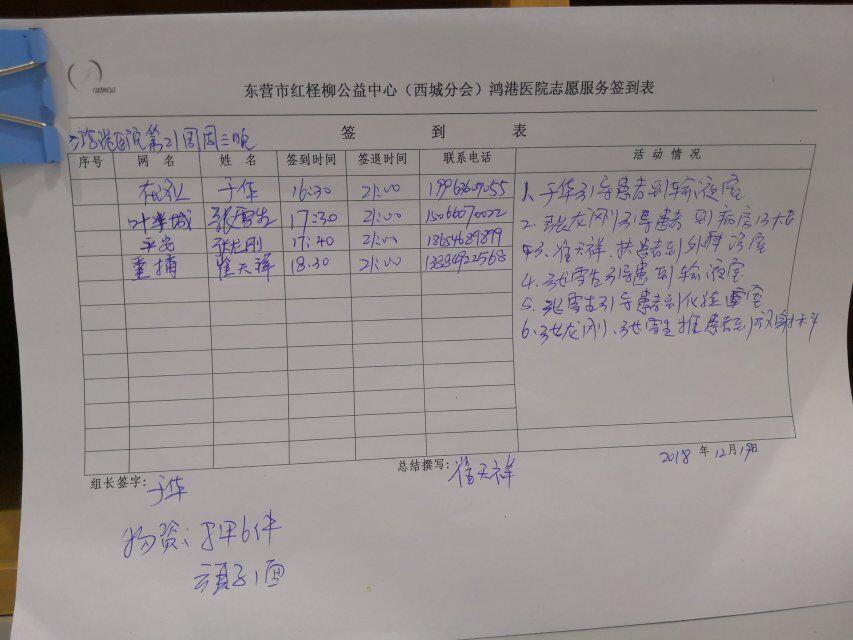 东营市红柽柳公益中心（西城分会）鸿港医院志愿服务签到表
鸿港医院第21周周二晚
签 到 表
序号 网 名 姓 名 签到时间 签退时间 联系电话 活 动 情 况
于华 16:30 21:00
叶半城 张雪生 17:30 21:00 15066070022
张龙刚 17:40 21:00 13654689899
崔天祥 18:30 21:00 13884922568
1、于华引导患者到输液室
2、张龙刚引导患者到病房13楼
3、崔天祥、扶患者到外科诊室
4、张雪生引导患到输液室
5、张雪生引导患者到化验室
6、张龙刚、张雪生推患者到放射科
组长签字：于华
总结撰写：崔天祥
2018 年 12月19日
物资：马甲6件